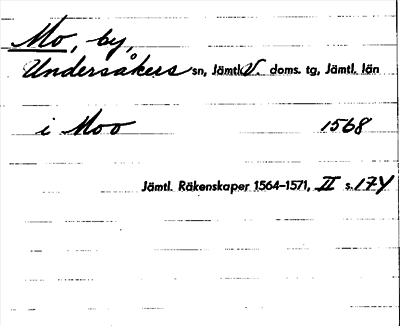 Mo, by,
Undersåkers sn, Jämtl. V. doms. tg, Jämtl. län
i Moo 1568
Jämtl. Räkenskaper 1564–1571, II s. 174